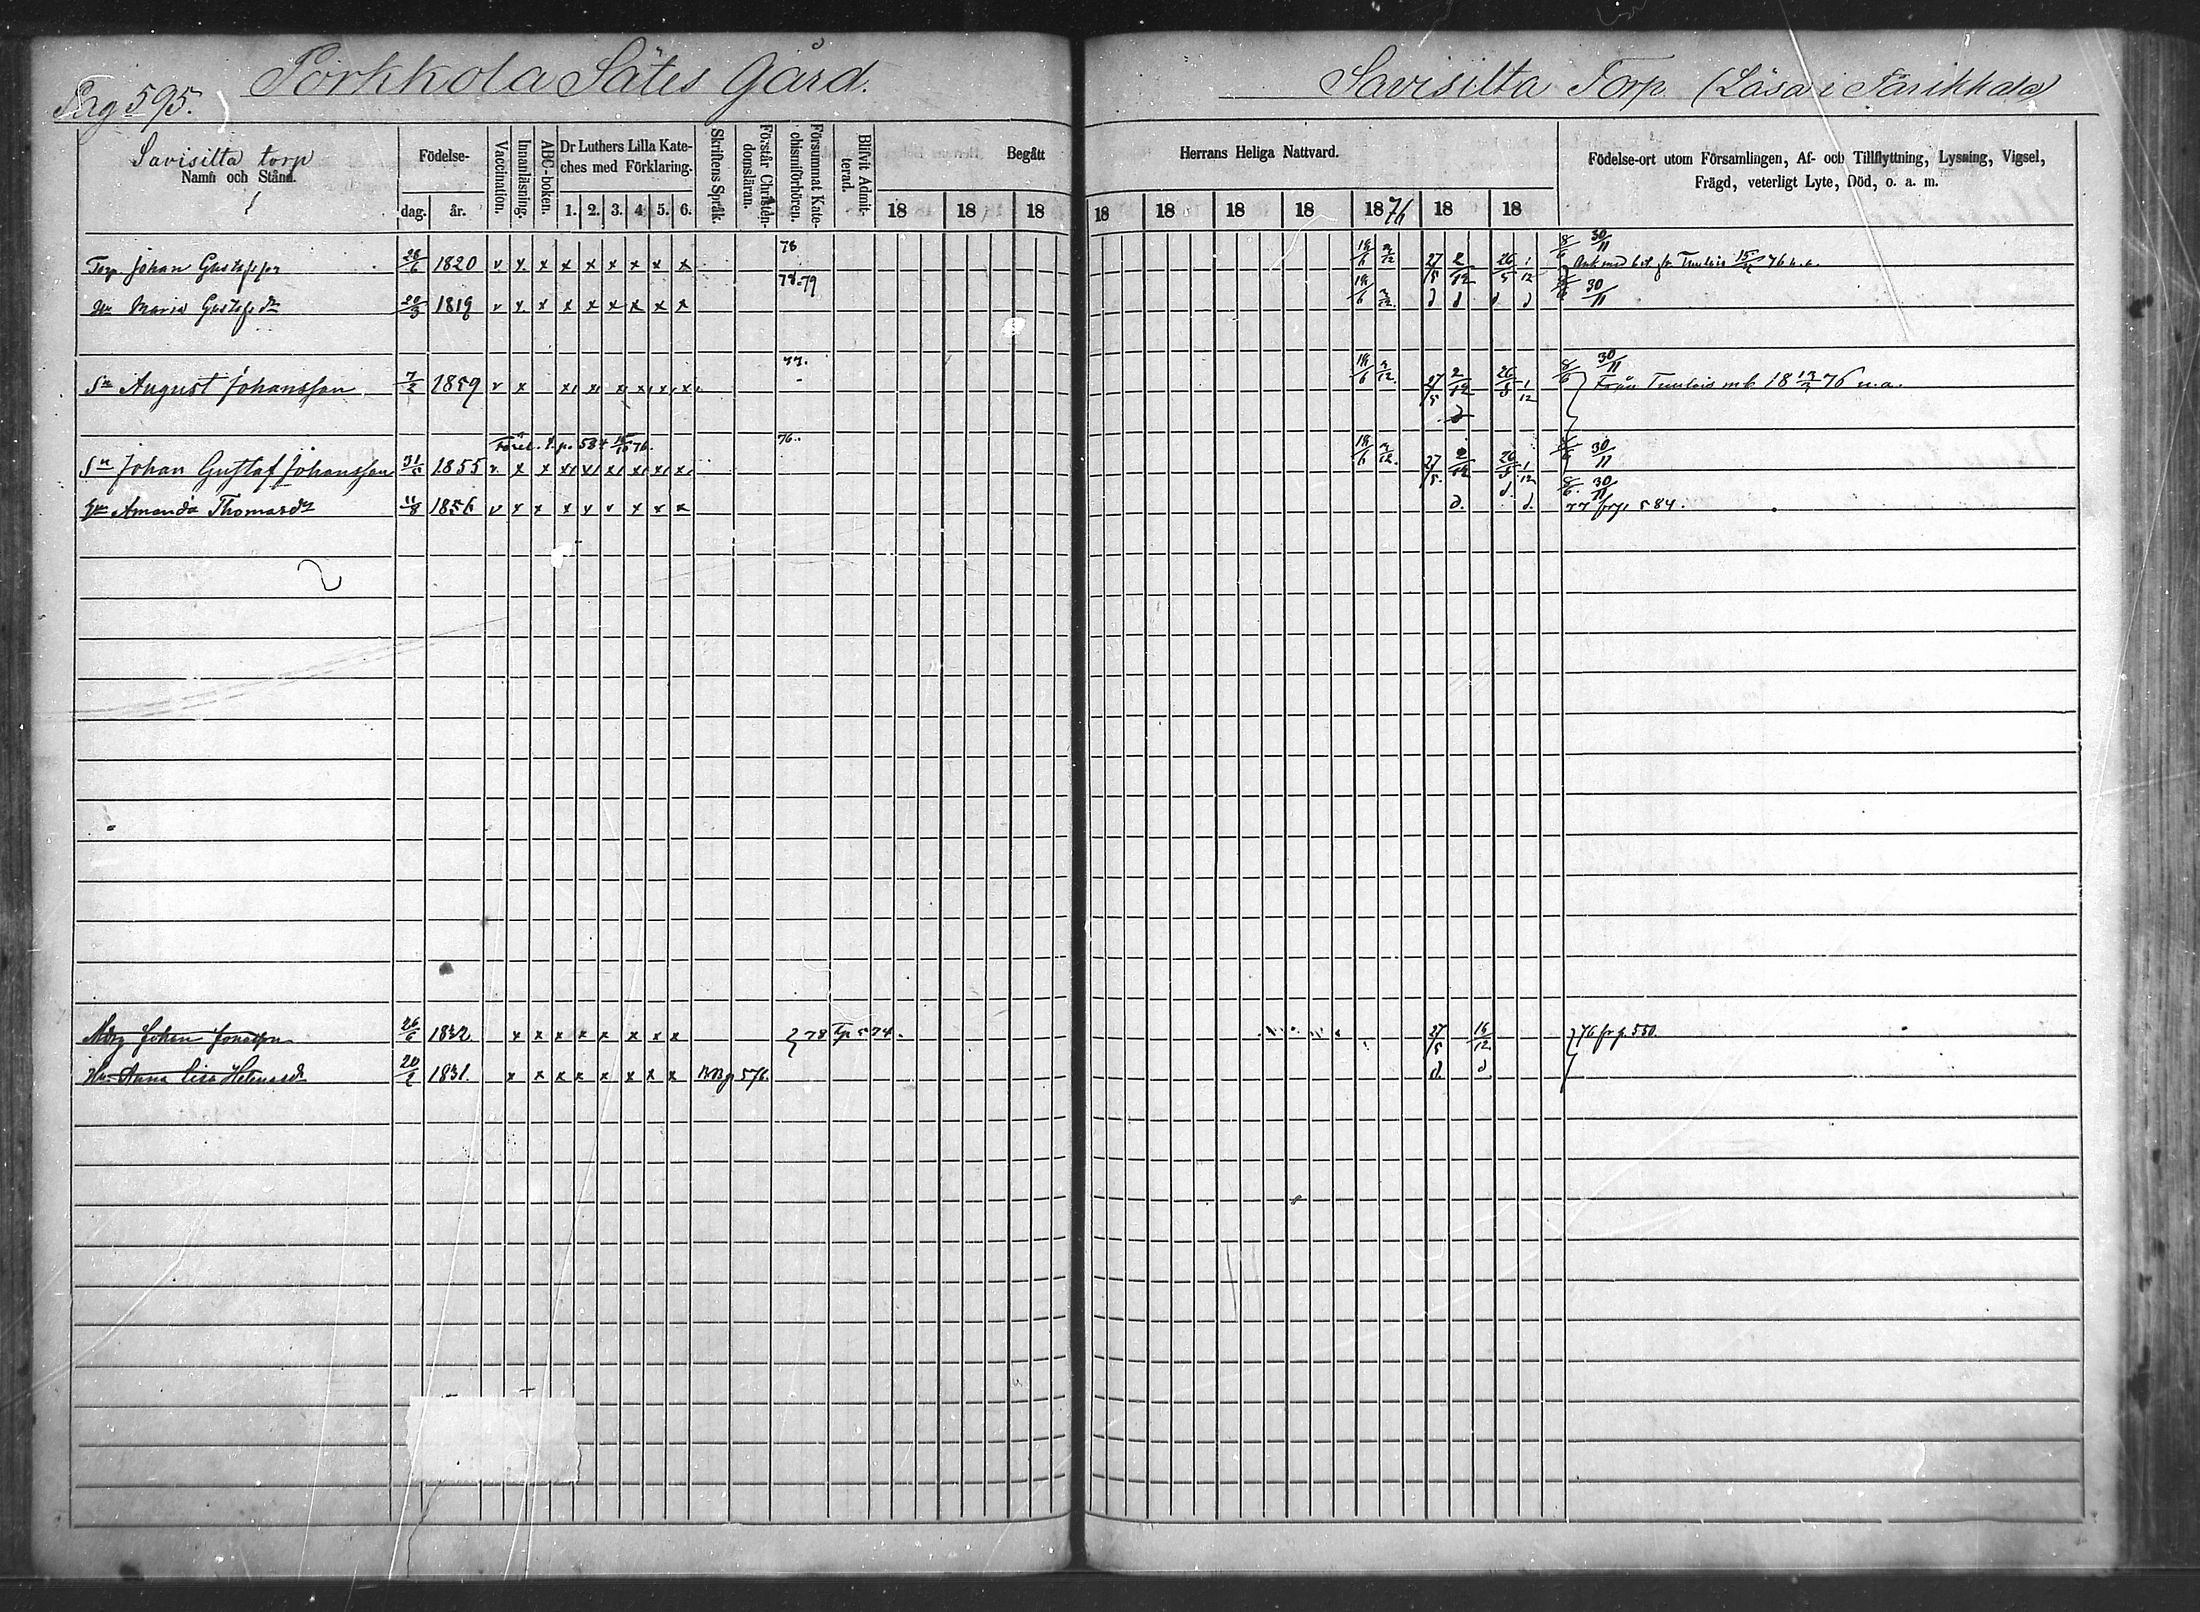 Pag 595. Porkkola Sätes Gård.
Savisilta Torp (Läsa i Parikkala)
Savisilta torp
Namn och Stånd.
Födelse-
dag. år.
Vaccination.
Innanläsning.
ABC-boken.
Dr Luthers Lilla Kate-
ches med Förklaring.
1. 2. 3. 4. 5. 6.
Skriftens Språk.
Förstår Christen-
domsläran.
Försummat Kate-
chismiförhören.
Blifvit Admit-
terad.
Begått
18 18 18
Herrans Heliga Nattvard.
18 18 18 18 1876 18 18
Födelse-ort utom Församlingen, Af- och Tillflyttning, Lysning, Vigsel,
Frägd, veterligt Lyte, Död, o. a. m.
Torp. Johan Gustafsson 28/6 1820 v x x x x x x x x 78 18/6 3/12 27/5 2/12 26/5 1/12 8/6 30/11
Hu Maria Gustafsdr 20/3 1819 v x x x x x x x x 78-79 18/6 3/12 d d d d 8/6 30/11
Sn August Johansson 7/2 1859 v x x x x x x x 77. 18/6 3/12 27/5 2/12 26/5 1/12 8/6 30/11
d
76 n.a.
Sn Johan Gustaf Johansson 1855 v x x x x x x x x 76. 18/6 3/12 27/5 2/12 26/5 1/12 8/6 30/11
Hu Amanda Thomasdr 11/8 1856 v x x x x v x x x d. d. d. 8/6. 30/11
77 frp 584.
Johan 26/6 1832 x x x x x x x x 78 Tp 574. 27/5 16/12 76 fr p. 550.
Hu Anna Lisa 1831. x x x x x x x x 576. d. d